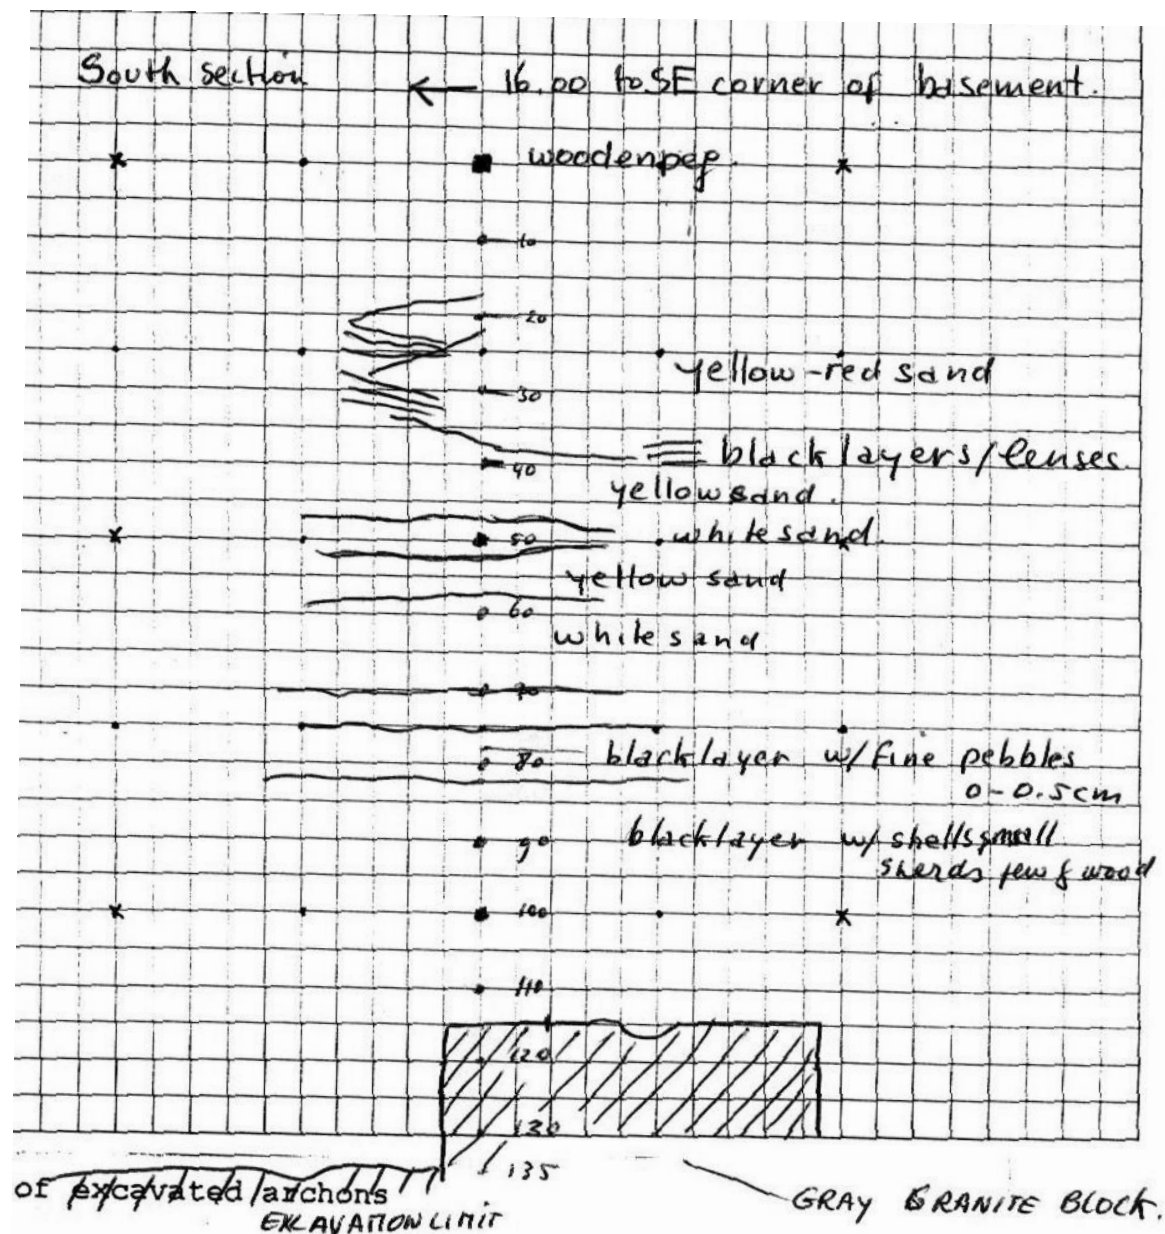 South section ← 16.00 to SE corner of basement.
wooden peg
10
20
yellow-red sand
30
black layers/lenses.
40
yellow sand.
50 white sand.
yellow sand
60
white sand
70
80 black layer w/ fine pebbles
0-0.5cm
90 black layer w/ shells small
sherds few & wood
100
110
120
130
135
of excavated archons
GRAY GRANITE BLOCK.
EXCAVATION LIMIT